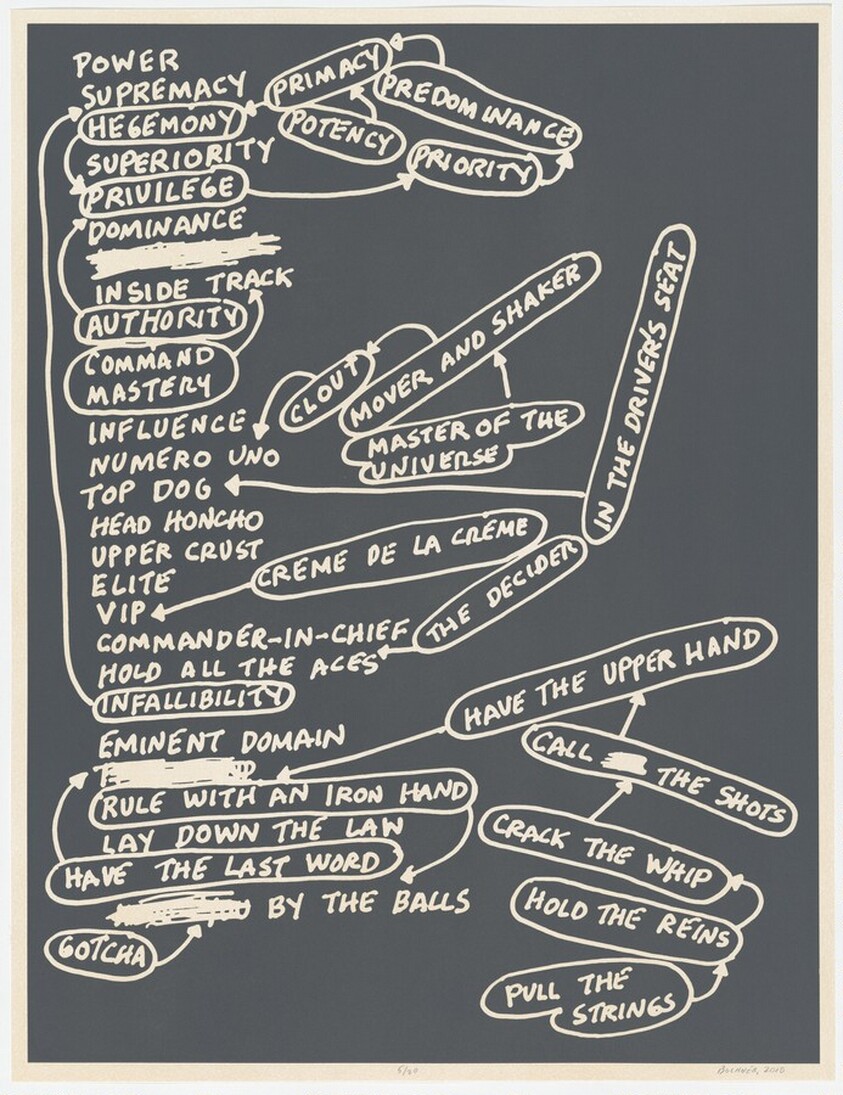 POWER
SUPREMACY
HEGEMONY
SUPERIORITY
PRIVILEGE
DOMINANCE
INSIDE TRACK
AUTHORITY
COMMAND
MASTERY
INFLUENCE
NUMERO UNO
TOP DOG
HEAD HONCHO
UPPER CRUST
ELITE
VIP
COMMANDER-IN-CHIEF
HOLD ALL THE ACES
INFALLIBILITY
EMINENT DOMAIN
RULE WITH AN IRON HAND
LAY DOWN THE LAW
HAVE THE LAST WORD
BY THE BALLS
GOTCHA
PRIMACY
PREDOMINANCE
POTENCY
PRIORITY
CLOUT
MOVER AND SHAKER
MASTER OF THE
UNIVERSE
IN THE DRIVER'S SEAT
CRÈME DE LA CRÈME
THE DECIDER
HAVE THE UPPER HAND
CALL THE SHOTS
CRACK THE WHIP
HOLD THE REINS
PULL THE
STRINGS
BOCHNER, 2010